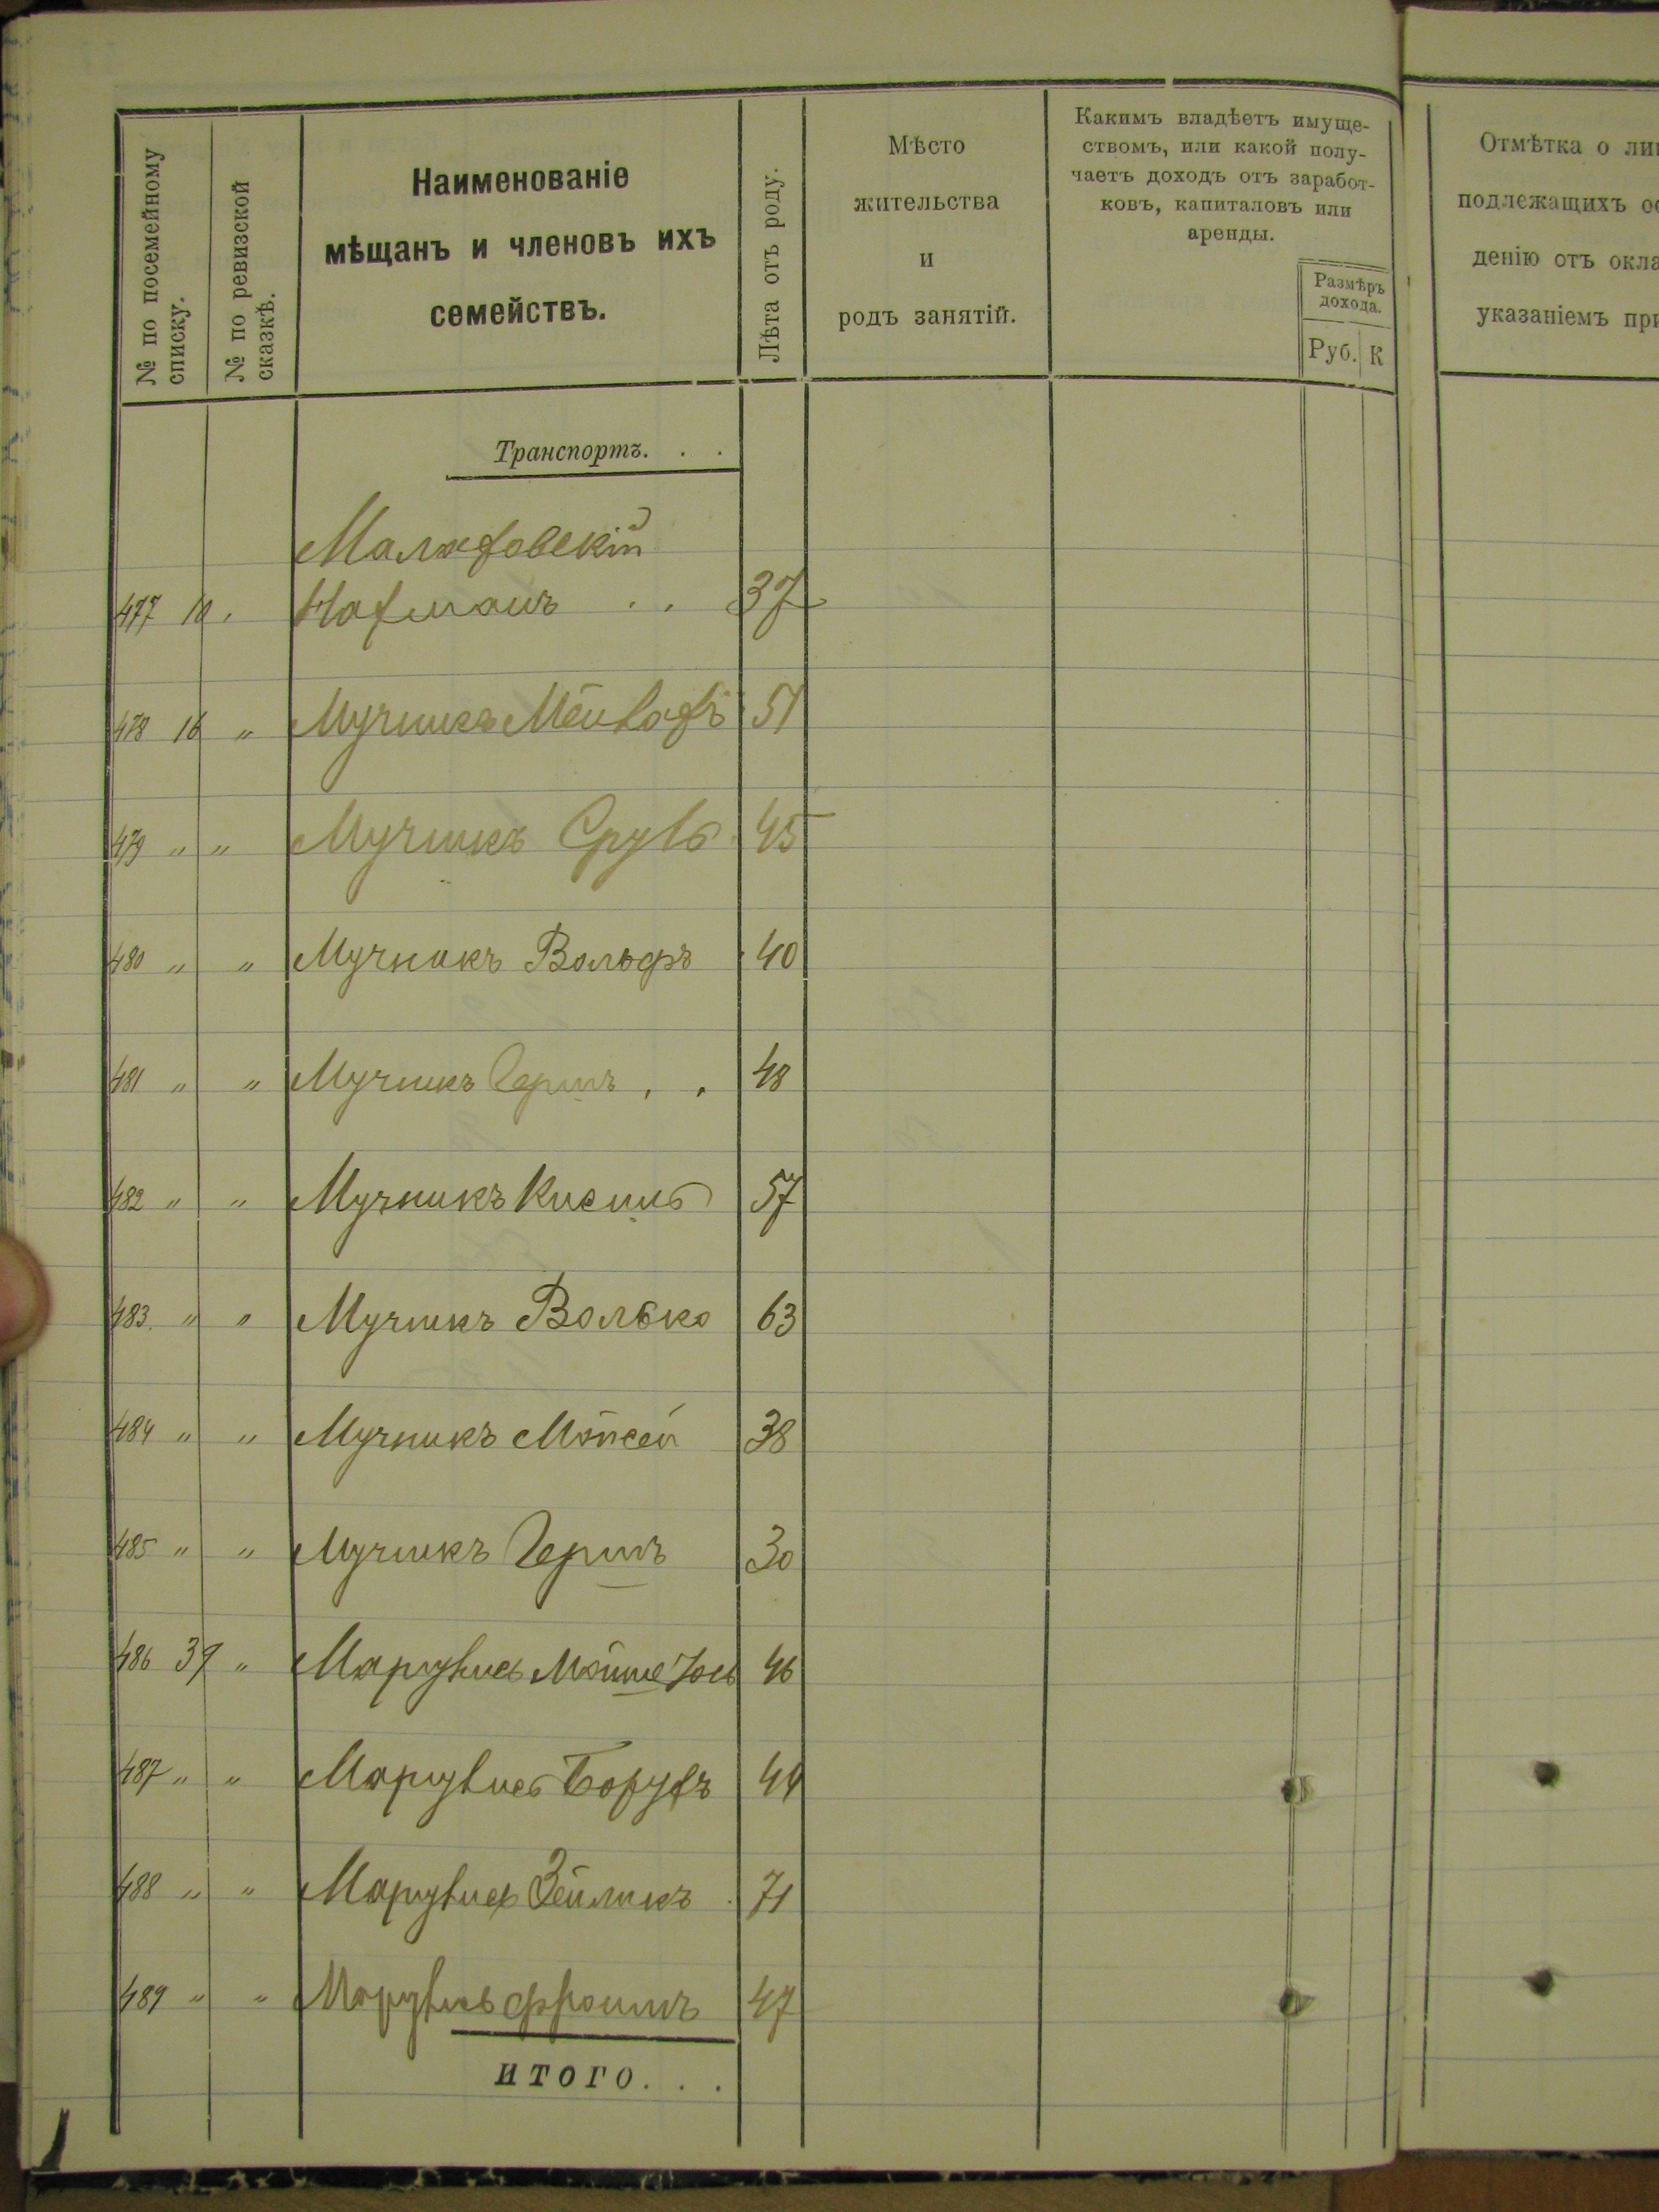 № по посемейному
списку.
№ по ревизской
сказкѣ.
Наименованіе
мѣщанъ и членовъ ихъ
семействъ.
Лѣта отъ роду.
Мѣсто
жительства
и
родъ занятій.
Какимъ владѣетъ имуще-
ствомъ, или какой полу-
чаетъ доходъ отъ заработ-
ковъ, капиталовъ или
аренды.
Размѣръ
дохода.
Руб. К
Отмѣтка о
подлежащихъ
денію отъ
указаніемъ
Транспортъ. . .
477 10 . Нахманъ . . 37
478 16 „ Мучникъ 51
479 „ „ Мучникъ Сруль 45
480 „ „ Мучникъ Вольфъ 40
481 „ „ Мучникъ Гершъ . . 48
482 „ „ Мучникъ Кисиль 57
483 „ „ Мучникъ Волько 63
484 „ „ Мучникъ Мойсей 38
485 „ „ Мучникъ Гершъ 30
486 39 „ Маргулисъ Мойше Іось 46
487 „ „ Маргулисъ Борухъ 44
488 „ „ Маргулисъ Зейликъ . 71
489 „ „ Маргулисъ Фроимъ 47
итого. . .